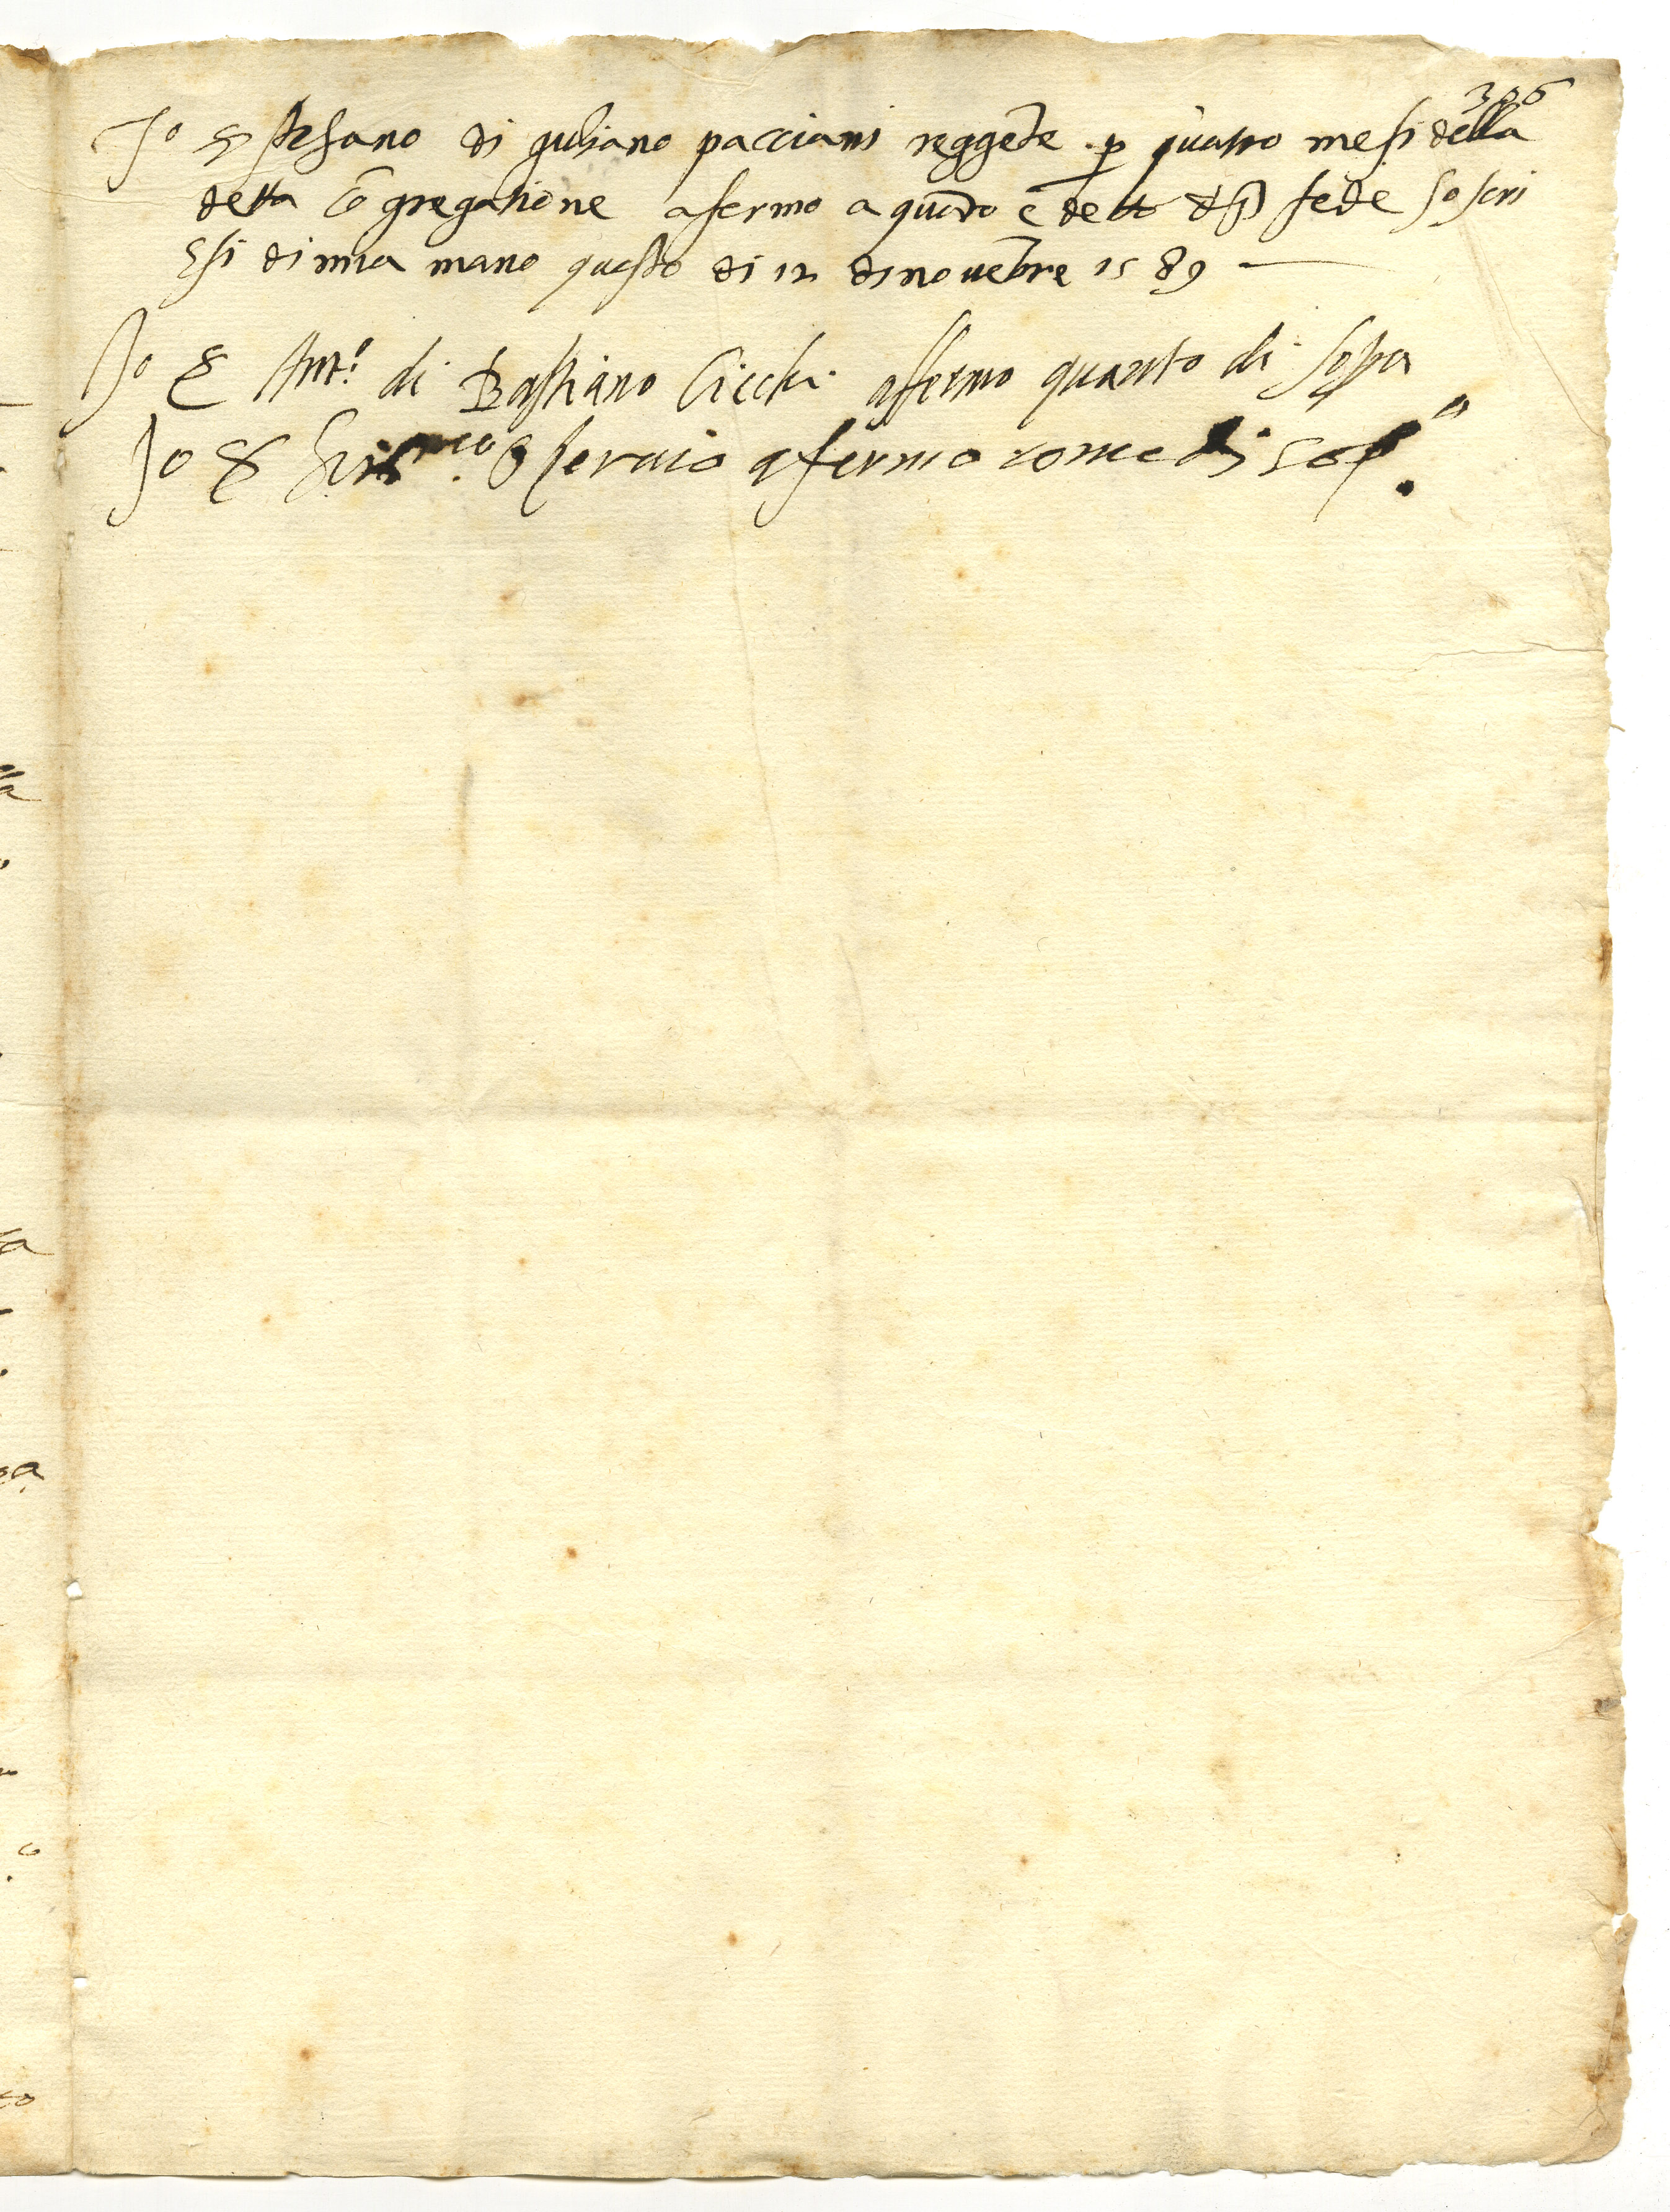 306
Io S. stefano di giuliano pacciani reggēte p quatro mesi della
detta cōgregatione afermo a quāto è detto & p fede soscri
ssi di mia mano questo di 12 di novēbre 1589
Io S. Ant.o di Bastiano Cicchi affermo quanto di sopra
Io S. afermo come di sop.a